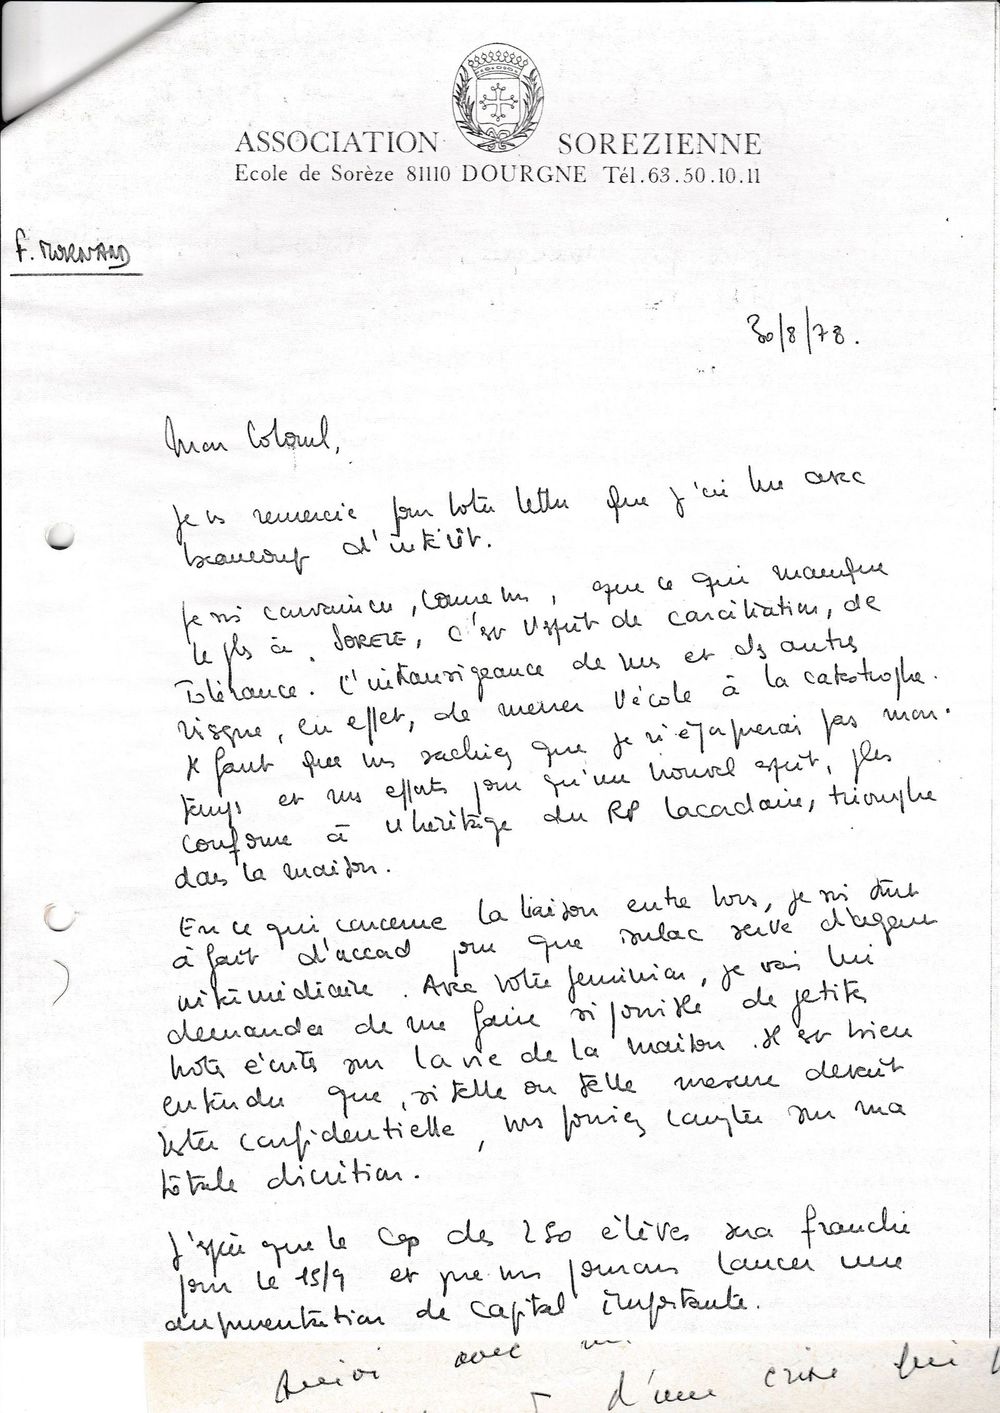 ASSOCIATION SOREZIENNE
Ecole de Sorèze 81110 DOURGNE Tél.63.50.10.11
F. MORNARD
30/8/78.
Mon Colonel,
Je vs remercie pour votre lettre que j'ai lue avec
beaucoup d'intérêt.
Je suis convaincu, comme vs, que ce qui manque
le plus à SOREZE, c'est l'esprit de conciliation, de
Tolérance. L'intransigeance de uns et ds autres
risque, en effet, de mener l'école à la catastrophe.
Il faut que vs sachiez que je n'épargnerai pas mon
temps et mes efforts pour qu'un nouvel esprit, plus
conforme à l'héritage du RP Lacordaire, triomphe
dans la maison.
En ce qui concerne la liaison entre nous, je suis tout
à fait d'accord pour que serve d'agent
intermédiaire. Avec votre permission, je vais lui
demander de me faire si possible de petites
notes écrites sur la vie de la maison. Il est bien
entendu que, si telle ou telle mesure devait
rester confidentielle, vs pouvez compter sur ma
totale discrétion.
J'espère que le Cap des 250 élèves sera franchi
pour le 15/9 et que ns pourrons lancer une
augmentation de capital importante.
avec
d'une crise qui